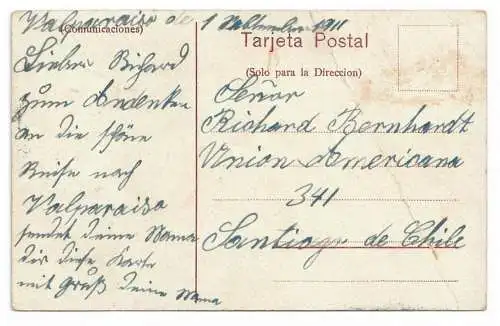 Valparaiso de 1 September 1911
(Comunicaciones)
Tarjeta Postal
(Solo para la Direccion)
Lieber Richard
zum Andenken
an die schöne
Reise nach
Valparaiso
sendet deine Mama
dir diese Karte
mit Gruß deine Mama
Señor
Richard Bernhardt
Union Americana
341
Santiago de Chile